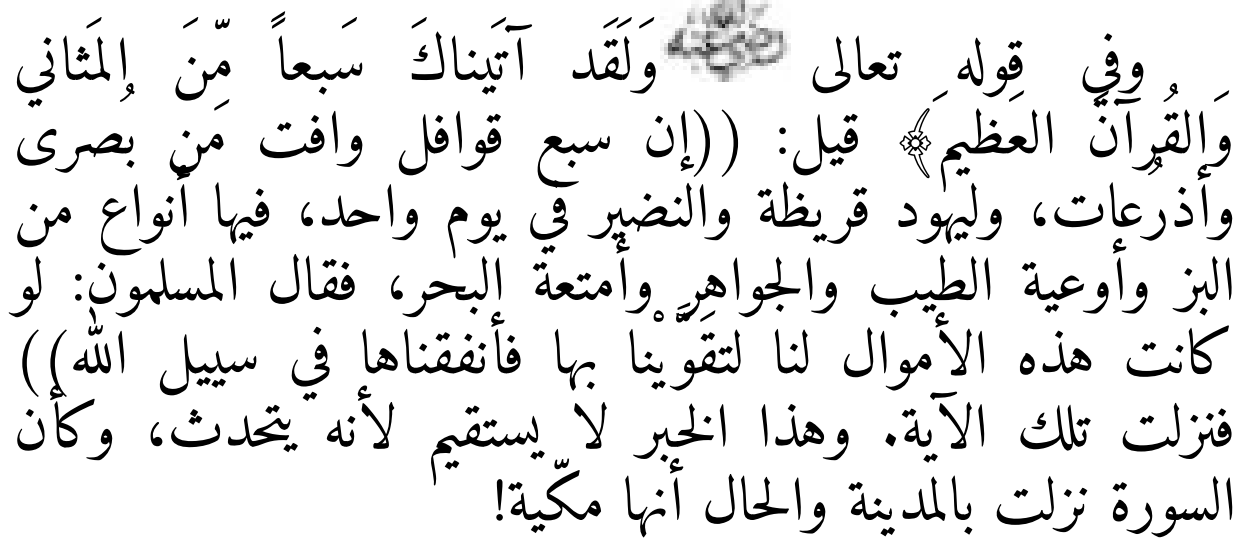 وفي قوله تعالى وَلَقَد آتَيناكَ سَبعاً مِّنَ المَثاني
وَالقُرآنَ العَظيمَ﴾ قيل: ((إن سبع قوافل وافت من بُصرى
وأذرُعات، وليهود قريظة والنضير في يوم واحد، فيها أنواع من
البز وأوعية الطيب والجواهر وأمتعة البحر، فقال المسلمون: لو
كانت هذه الأموال لنا لتقَوَّيْنا بها فأنفقناها في سبيل الله))
فنزلت تلك الآية. وهذا الخبر لا يستقيم لأنه يتحدث، وكأن
السورة نزلت بالمدينة والحال أنها مكّية!